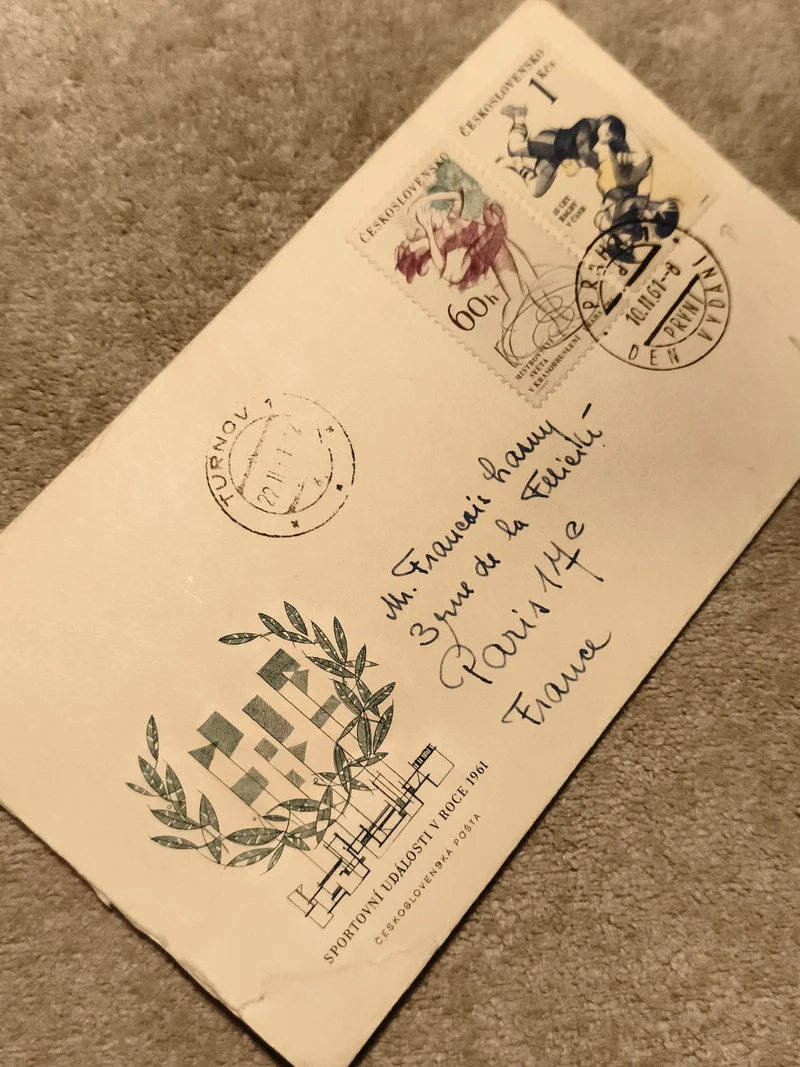 ČESKOSLOVENSKO
60h
MISTROVSTVÍ
SVĚTA
V KRASOBRUSLENÍ
ČESKOSLOVENSKO
1 Kčs
35 LET
RAGBY
V ČSSR
PRAHA 1
10.II.61-8
PRVNÍ
DEN VYDÁNÍ
TURNOV 1
22.II.
Mr. Francois
3 rue de la Felicité
Paris 17e
France
SPORTOVNÍ UDÁLOSTI V ROCE 1961
ČESKOSLOVENSKÁ POŠTA